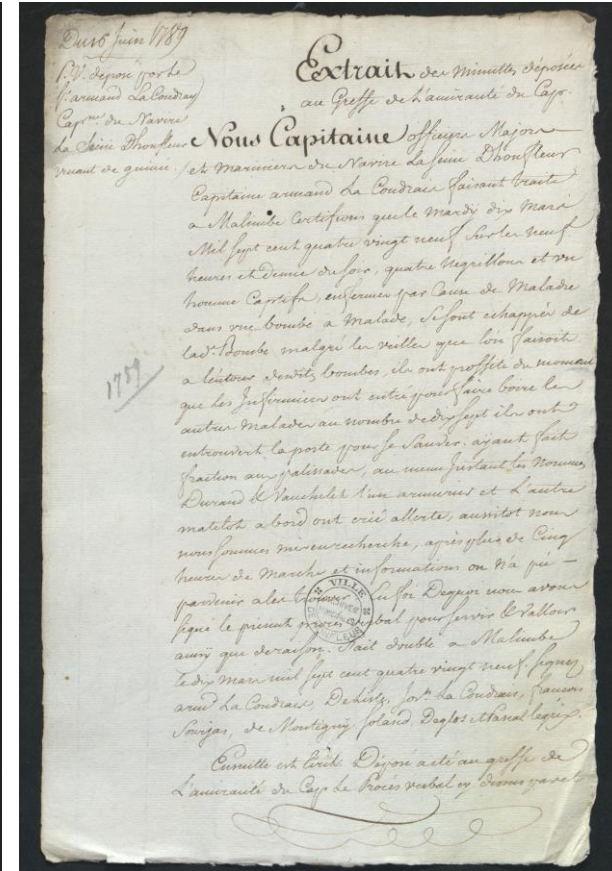 Du 16 Juin 1789
P.V. déposé par le
Sr. armand La Coudrais
Capne. du Navire
La Seine D'honfleur
venant de guinée./.
Extrait des Minuttes déposées
au Greffe de L'amirauté du Cap.
Nous Capitaine officiers Majors
et mariniers du Navire La Seine D'honfleur
Capitaine armand La Coudrais faisant traite
a Malimbe Certifions que le mardy dix Mars
Mil sept cent quatre vingt neuf sur les neuf
heures et demie du soir, quatre Negrillons et un
homme Captifs, enfermés par Cause de Maladie
dans une bombe a Malade, se sont echappés de
lade. Bombe malgré les veilles que l'on faisoit
a l'entour desdits bombes, ils ont proffité du moment
que les Infirmiers ont entré pour faire boire les
autres Malades au nombre de dix sept ils ont
entrouvert la porte pour se Sauver. ayant fait
fraction aux palissades, au meme Instant les Nommés
Durand & Vauchelet l'un armurier et L'autre
matelot a bord ont crié allerte, aussitot nous
nous sommes mis en recherche, après plus de Cinq
heures de Marche et informations on n'a pû -
parvenir a les trouver En foi Dequoi nous avons
signé le présent procès verbal pour servir & valloir
ainsy que de raison. Fait double a Malimbe
le dix mars mil sept cent quatre vingt neuf. signés
armd La Coudrais, Jos. La Coudrais, francois
de Montigny,
Ensuitte est Ecrit Déposé acté au greffe de
L'amirauté du Cap Le Procès verbal cy dessus par
1789
VILLE
HONFLEUR